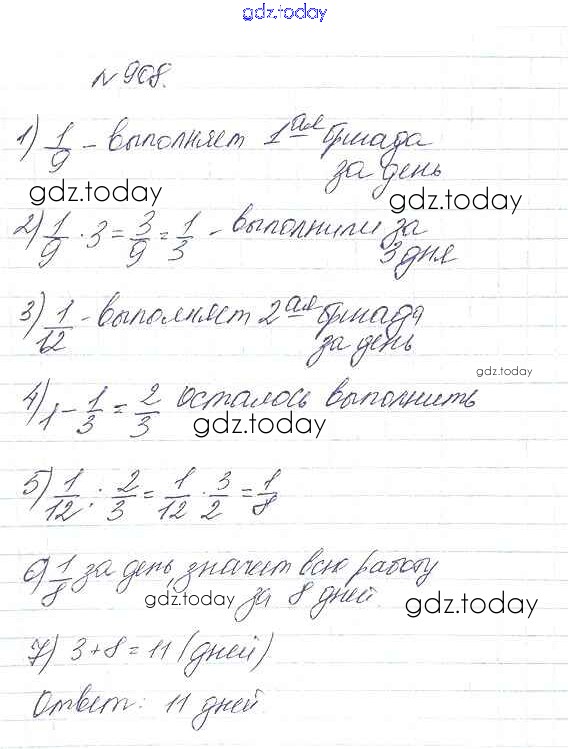 gdz.today
№ 908.
1) 1/9 - выполняет 1ая бригада
за день
gdz.today
2) 1/9 · 3 = 3/9 = 1/3 - выполнили за
3 дня
gdz.today
3) 1/12 - выполняет 2ая бригада
за день
gdz.today
4) 1 - 1/3 = 2/3 осталось выполнить
gdz.today
5) 1/12 : 2/3 = 1/12 · 3/2 = 1/8
6) 1/8 за день, значит всю работу
за 8 дней.
gdz.today
gdz.today
7) 3 + 8 = 11 (дней)
Ответ: 11 дней